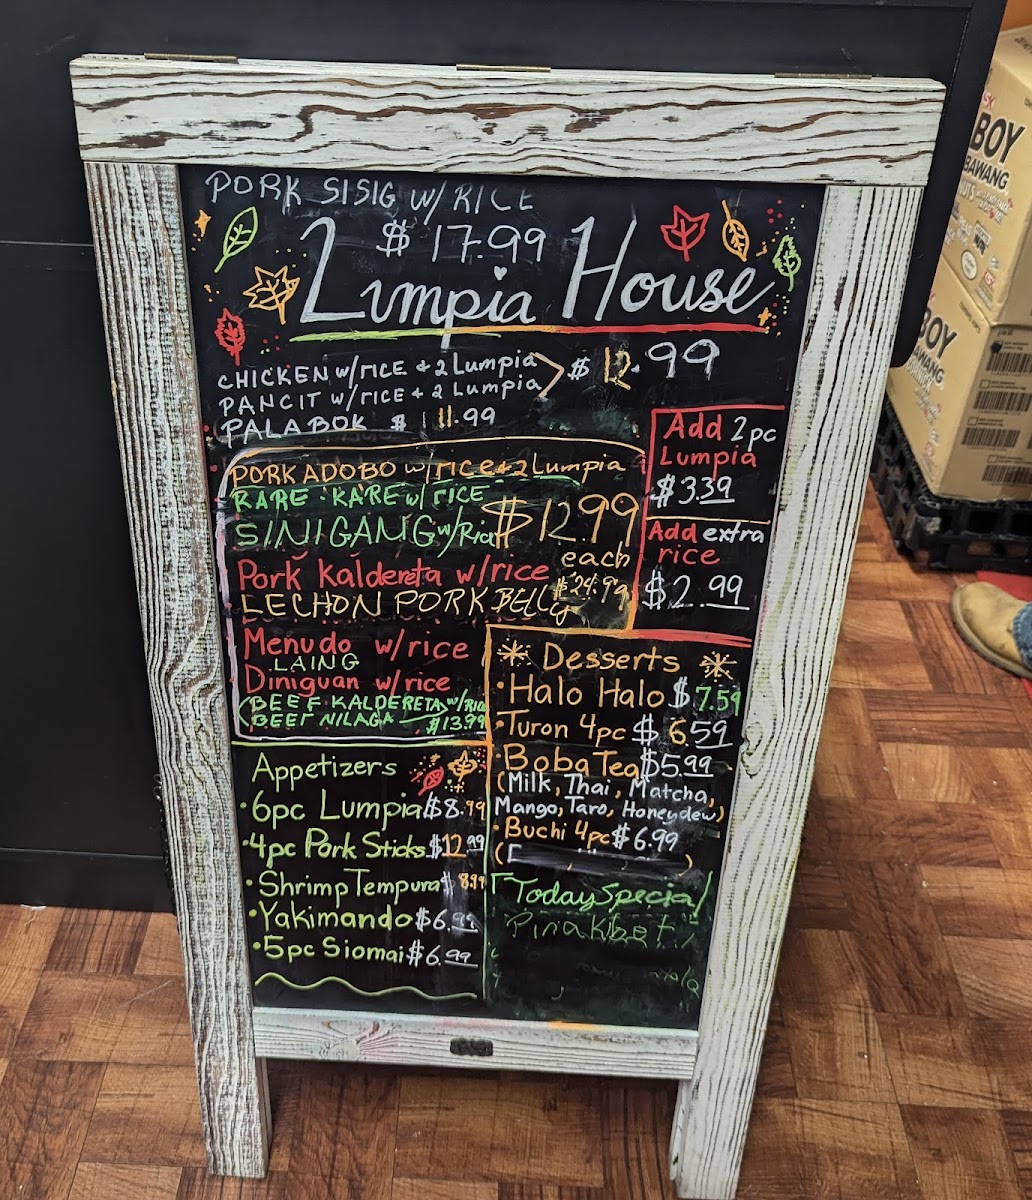 PORK SISIG W/ RICE
$ 17.99
Lumpia House
CHICKEN w/ RICE + 2 Lumpia
PANCIT w/ RICE + 2 Lumpia
$ 12.99
PALABOK $ 11.99
PORK ADOBO w/ rice + 2 Lumpia
KARE KARE w/ RICE
SINIGANG w/ Rice
$12.99
each
Pork Kaldereta w/rice
LECHON PORK BELLY
$24.99
Menudo w/rice
LAING
Diniguan w/rice
BEEF KALDERETA w/Rice
BEEF NILAGA $13.99
Add 2pc
Lumpia
$3.39
Add extra
rice
$2.99
Appetizers
·6pc Lumpia $8.99
·4pc Pork Sticks $12.99
·Shrimp Tempura $8.99
·Yakimando $6.99
·5pc Siomai $6.99
Desserts
·Halo Halo $7.59
·Turon 4pc $6.59
·Boba Tea $5.99
(Milk, Thai, Matcha,
Mango, Taro, Honeydew)
·Buchi 4pc $6.99
Today Special
Pinakbet
BOY
BAWANG
BOY
BAWANG